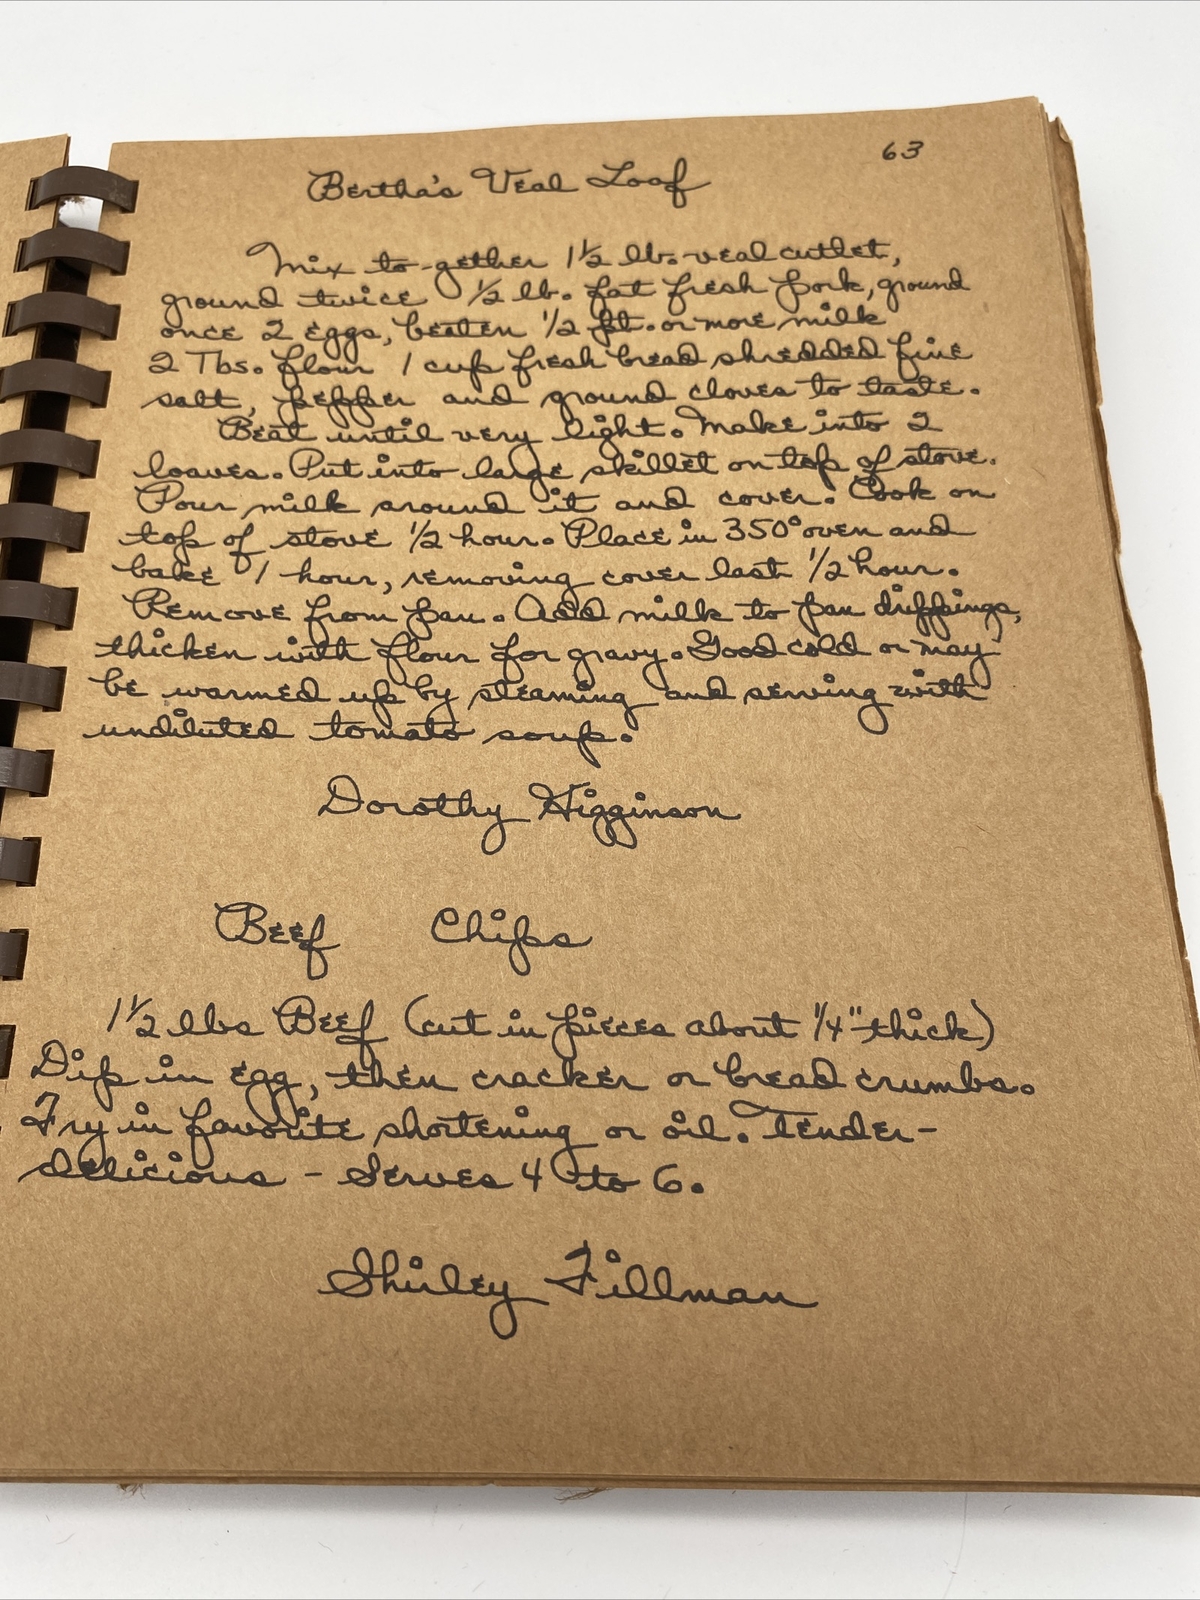 63
Bertha's Veal Loaf
Mix to-gether 1½ lb. veal cutlet,
ground twice ½ lb. fat fresh pork, ground
once 2 eggs, beaten ½ pt. or more milk
2 Tbs. flour 1 cup fresh bread shredded fine
salt, pepper and ground cloves to taste.
Beat until very light. Make into 2
loaves. Put into large skillet on top of stove.
Pour milk around it and cover. Cook on
top of stove ½ hour. Place in 350° oven and
bake 1 hour, removing cover last ½ hour.
Remove from pan. Add milk to pan drippings,
thicken with flour for gravy. Good cold or may
be warmed up by steaming and serving with
undiluted tomato soup.
Dorothy Higginson
Beef Chips
1½ lbs Beef (cut in pieces about ¼" thick)
Dip in egg, then cracker or bread crumbs.
Fry in favorite shortening or oil. Tender-
delicious - Serves 4 to 6.
Shirley Fillman